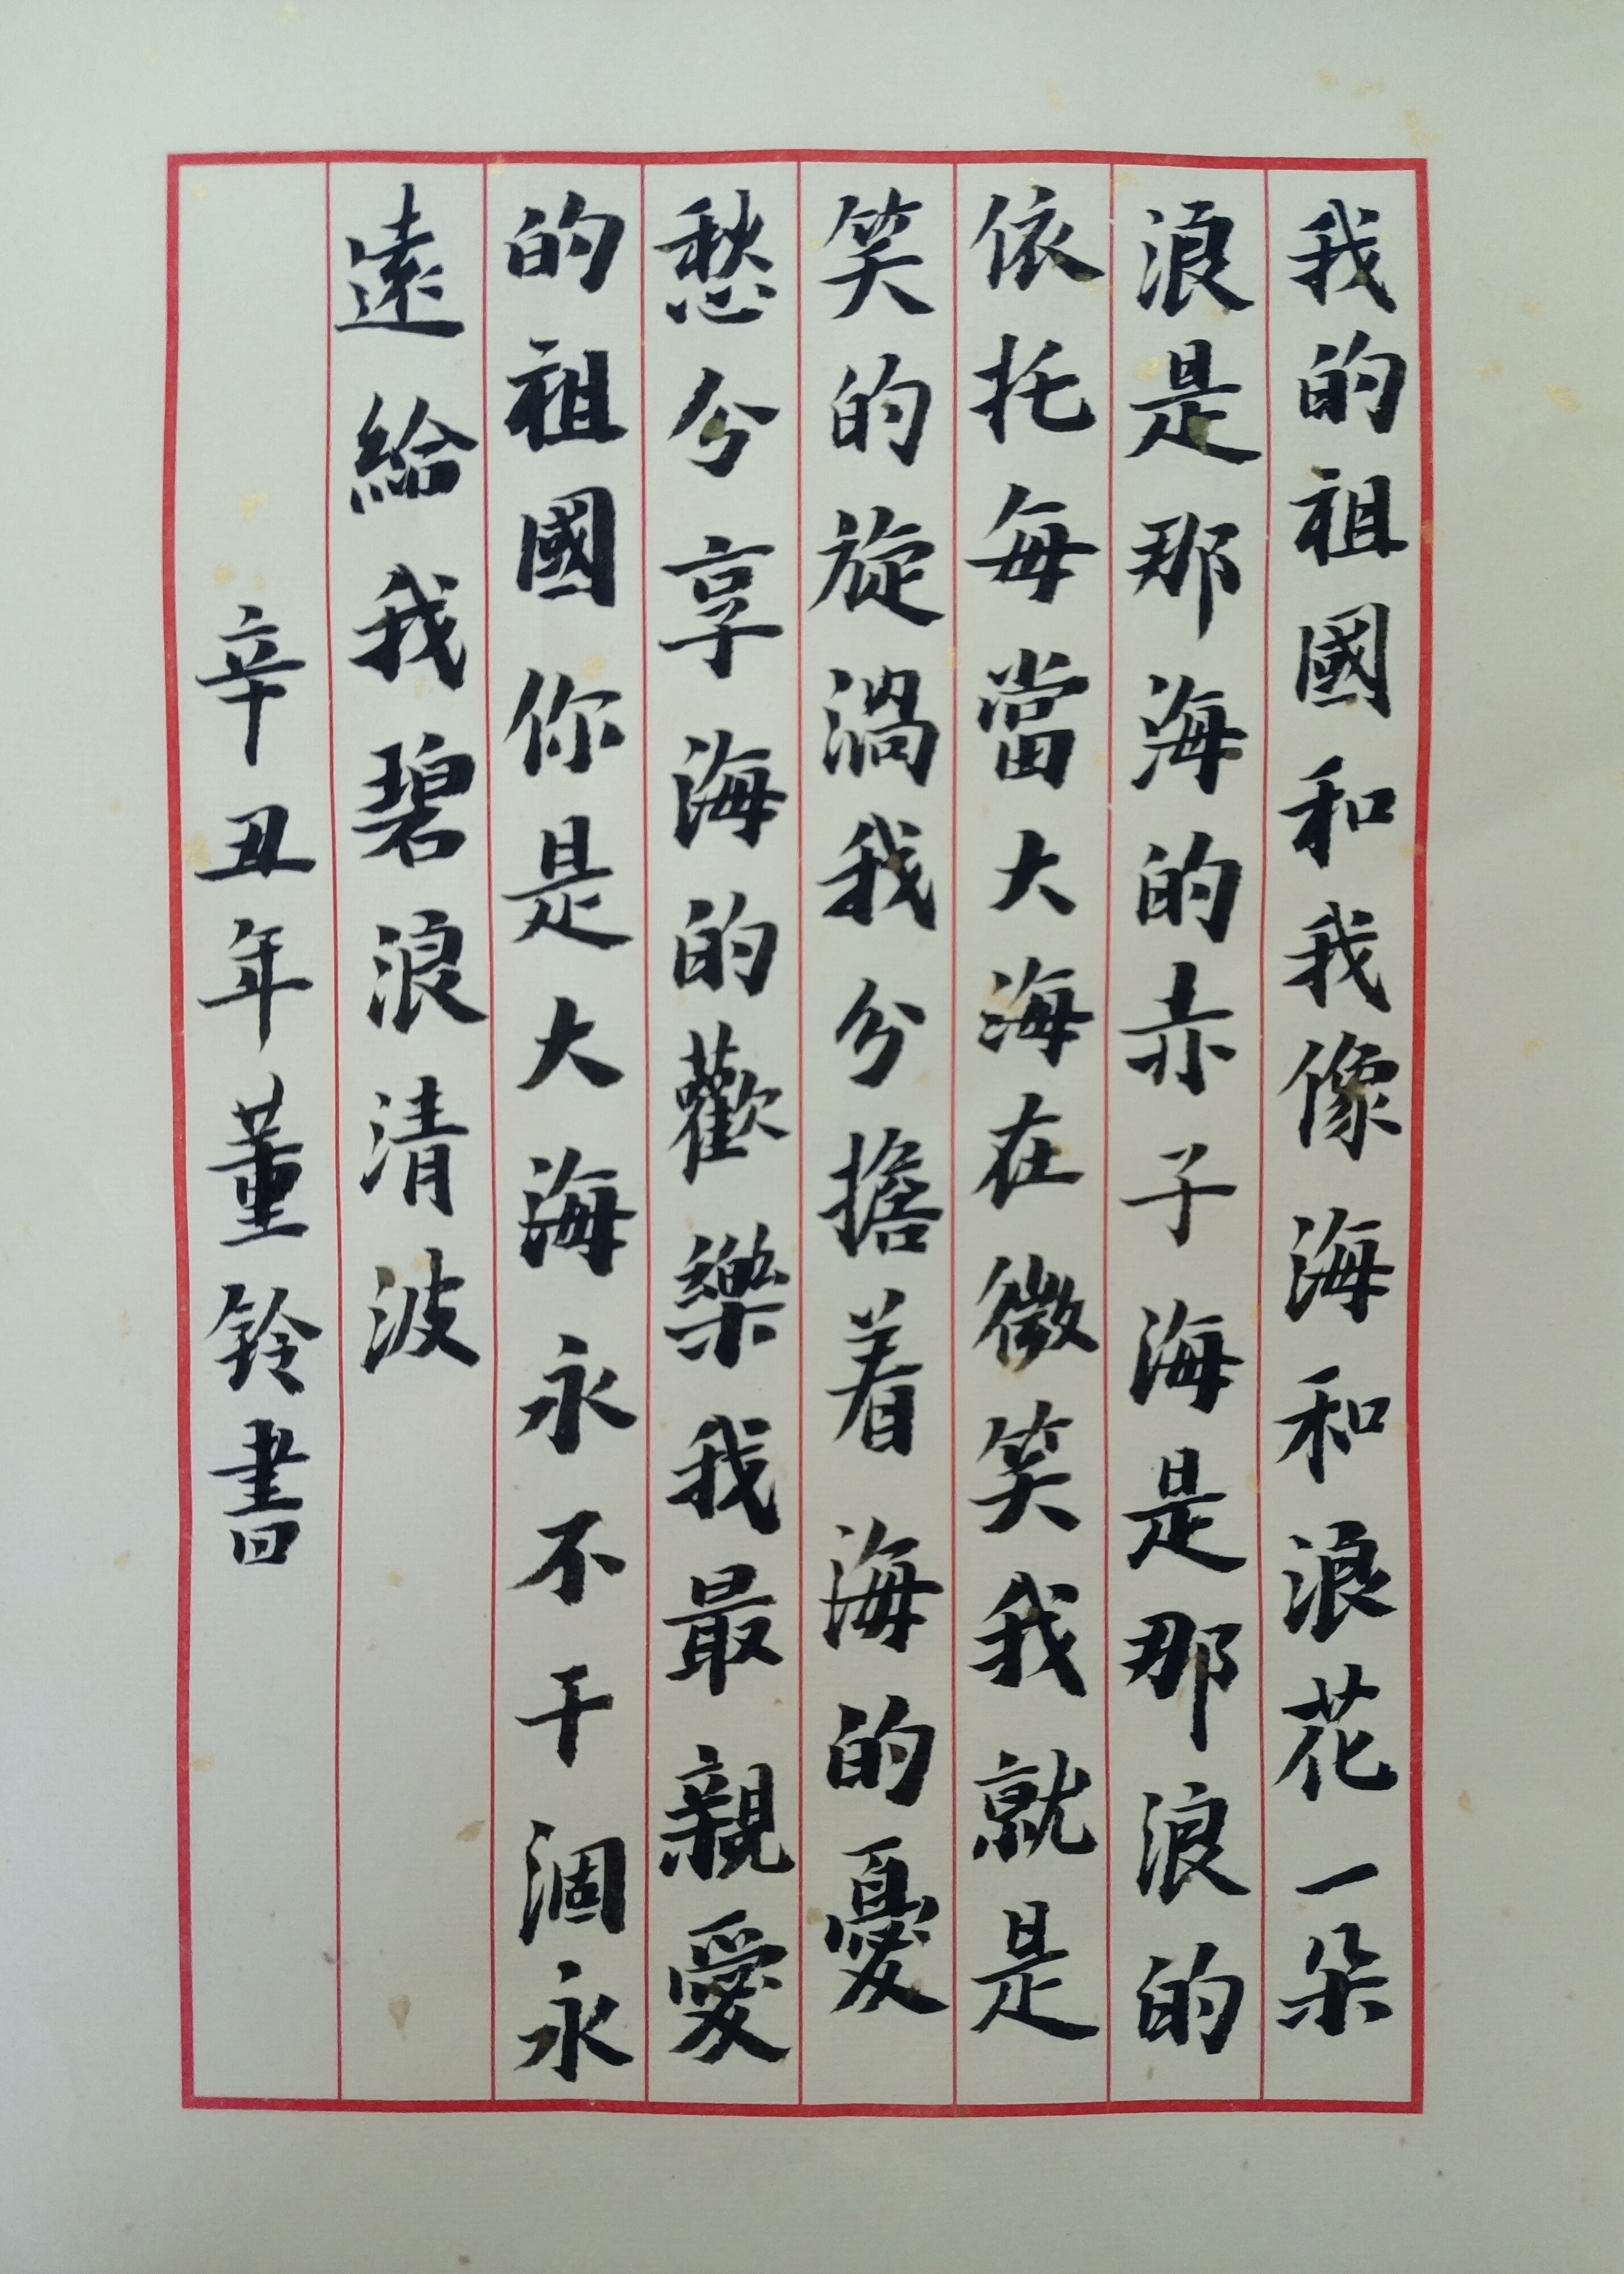 我的祖國和我像海和浪花一朵
浪是那海的赤子海是那浪的
依托每當大海在微笑我就是
笑的旋渦我分擔着海的憂
愁分享海的歡樂我最親愛
的祖國你是大海永不干涸永
遠給我碧浪清波
辛丑年董鈴書